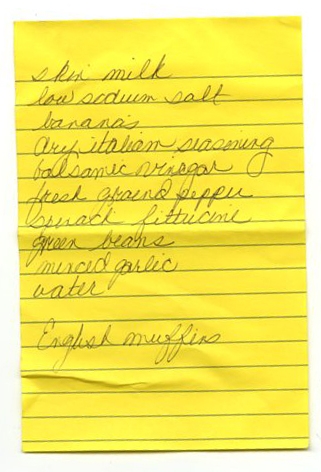 skim milk
low sodium salt
bananas
dry italian seasoning
balsamic vinegar
fresh ground pepper
spinach fittucine
green beans
minced garlic
water
English muffins